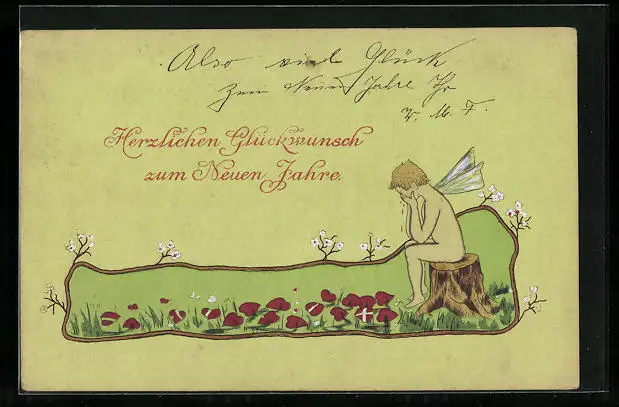 Also viele Glück
zum Neuen Jahre Ihr
V. M. F.
Herzlichen Glückwunsch
zum Neuen Jahre.